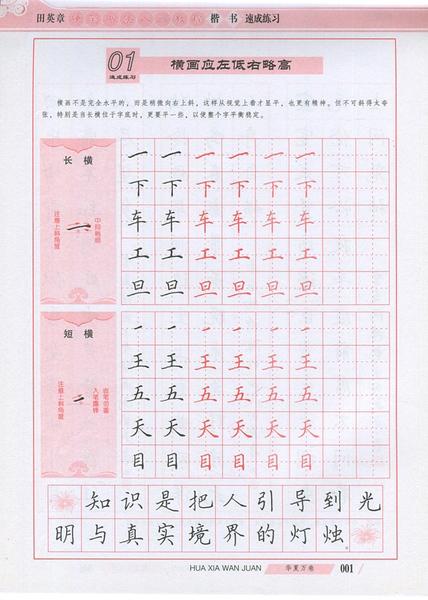 田英章 楷书 速成练习
01
速成练习
横画应左低右略高
横画不是完全水平的，而是稍微向右上斜，这样从视觉上看才显平，也更有精神。但不可斜得太夸
张，特别是当长横位于字底时，更要平一些，以使整个字平衡稳定。
长横
中段稍细
注意上斜角度
一 一 一 一 一
下 下 下 下 下
车 车 车 车 车
工 工 工 工 工
旦 旦 旦 旦 旦
短横
入笔露锋
注意上斜角度
一 一 一 一 一
王 王 王 王 王
五 五 五 五 五
天 天 天 天 天
目 目 目 目 目
知识是把人引导到光
明与真实境界的灯烛
HUA XIA WAN JUAN 华夏万卷 001